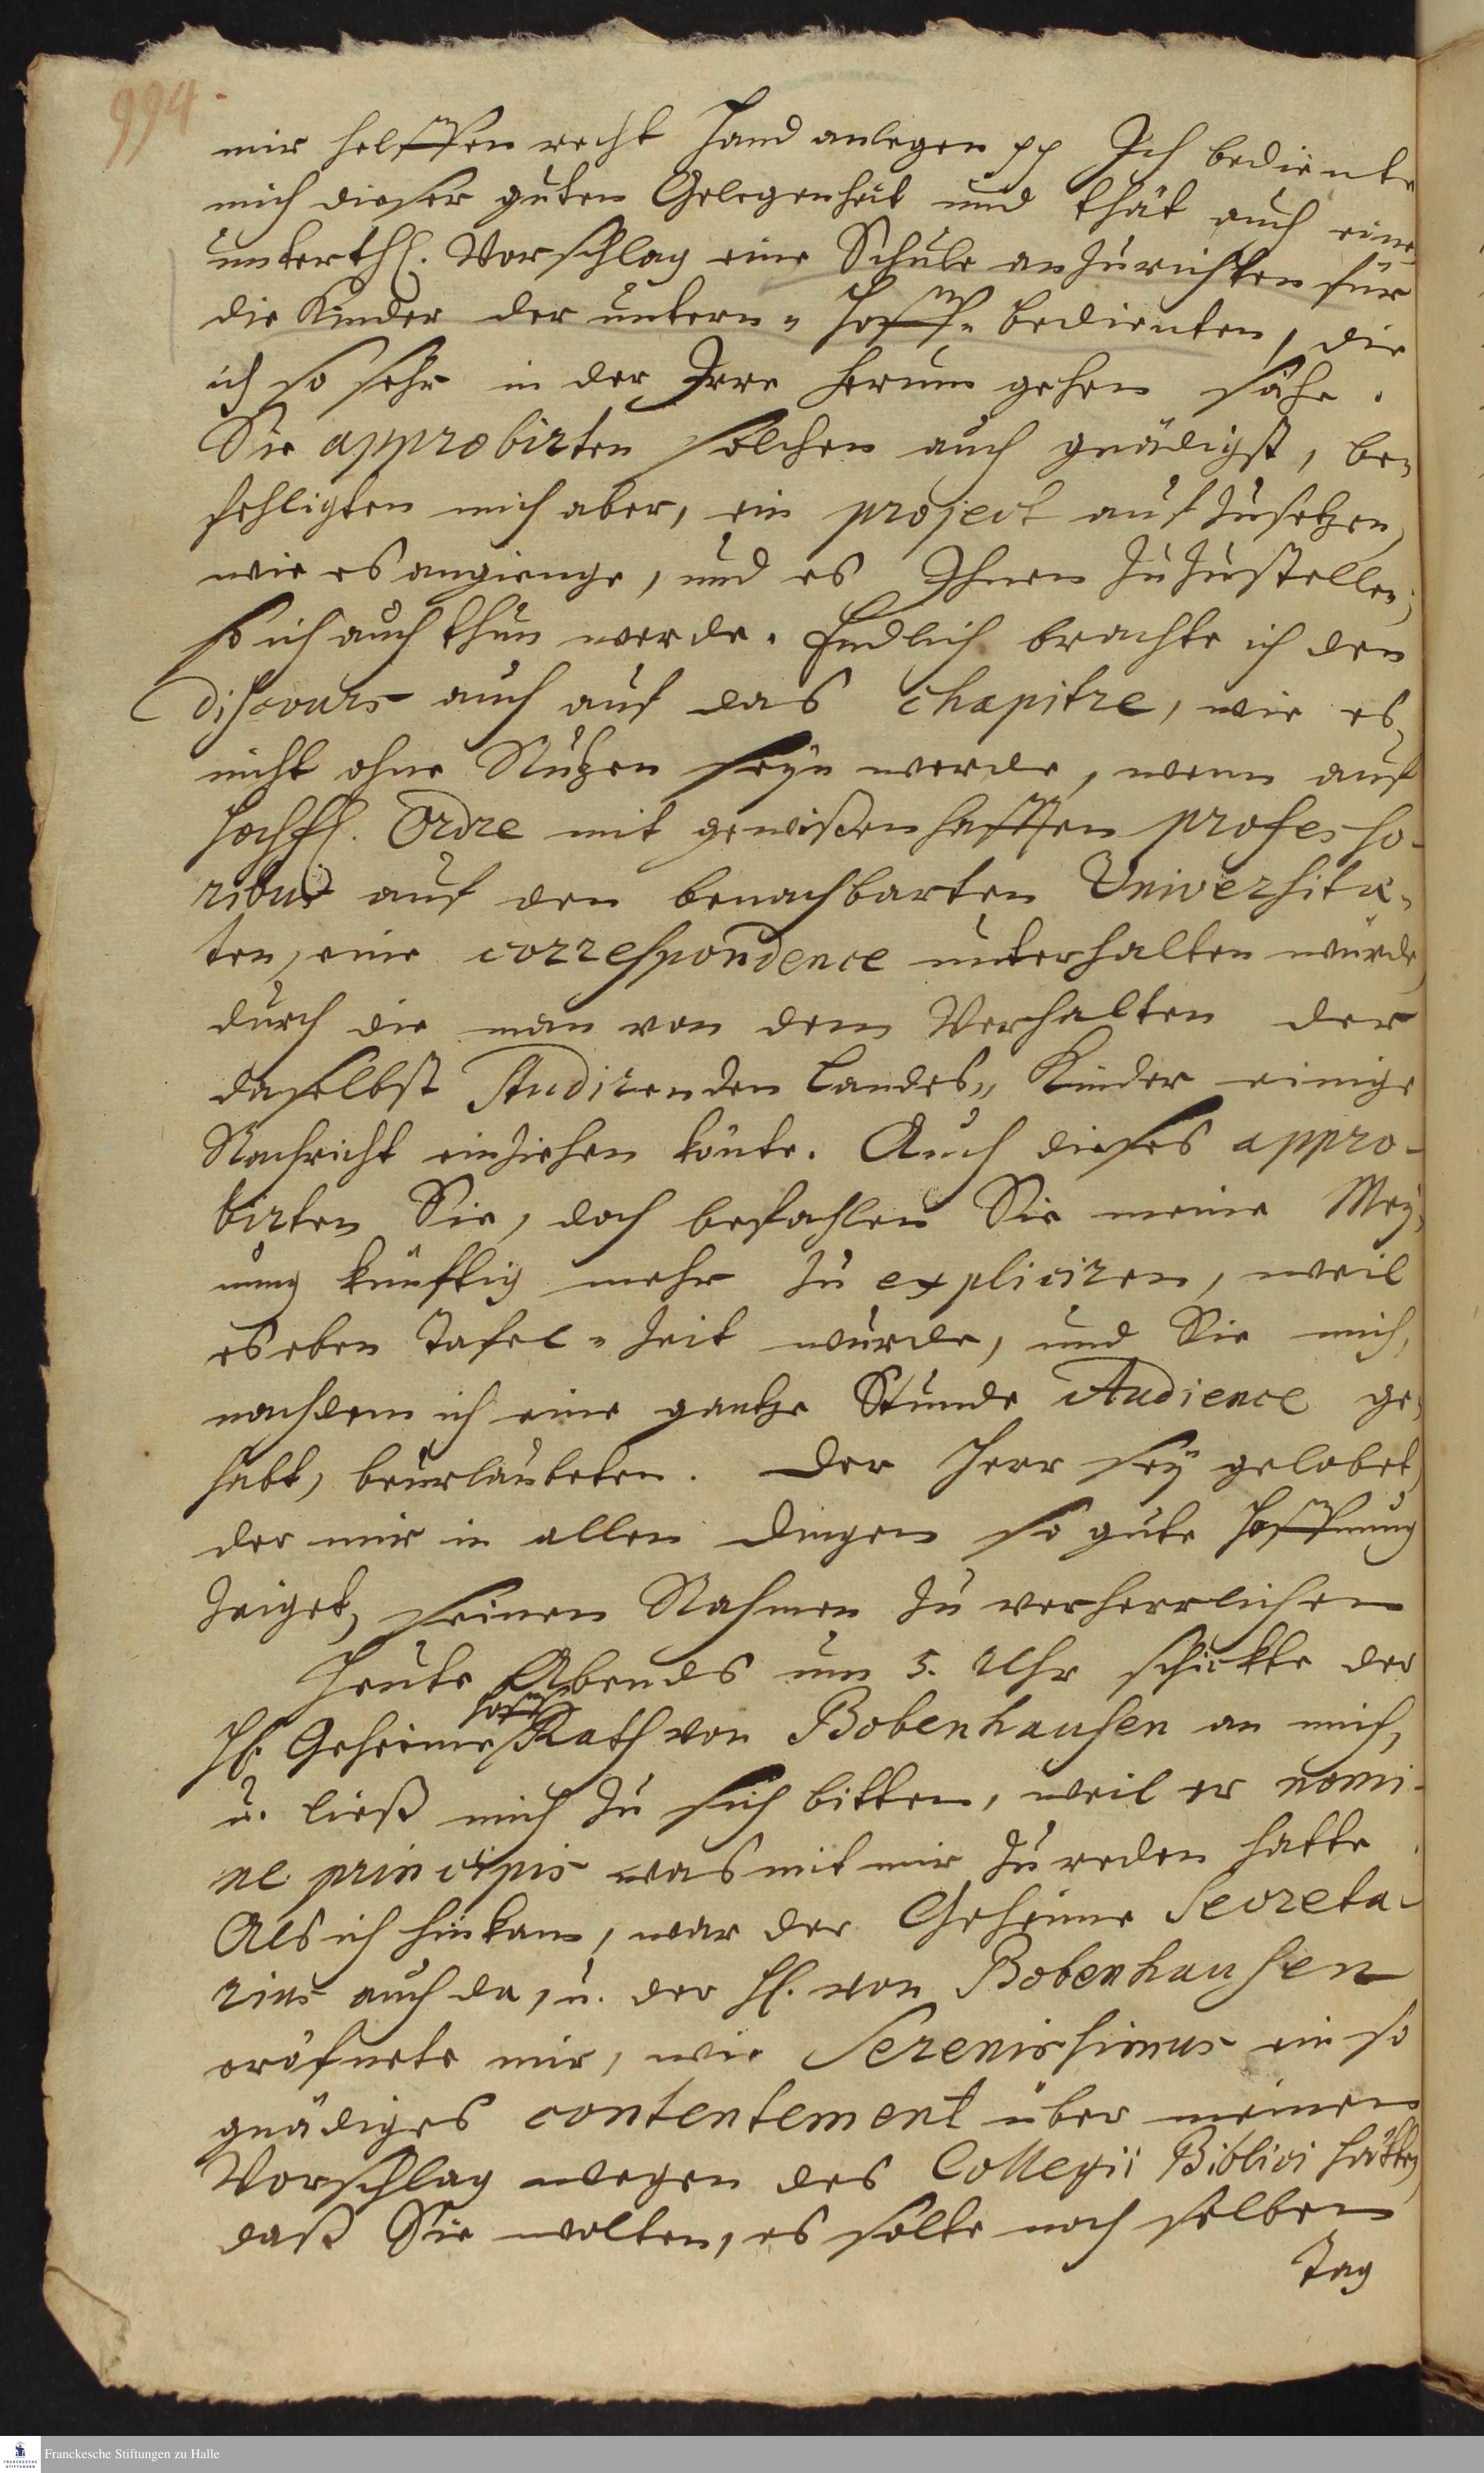 994.
mir helffen recht Hand anlegen pp Ich bediente
mich dieser guten Gelegenheit und thät auch eine
unterthl. Vorschlag eine Schule anzurichten für
die Kinder der untern- Hoff- bedienten, die
ich so sehr in der Irre herum gehen sähe.
Sie approbirten solchen auch gnädigst, be-
fehligten mich aber, ein project aufzusetzen,
wie es angienge, und es Ihnen zuzustellen,
so ich auch thun werde. Endlich brachte ich den
discours auch auf das chapitre, wie es
nicht ohne Nutzen seyn werde, wenn auf
Hochfl. Ordre mit gewißenhafften professo-
ribus auf den benachbarten Universitæ-
ten, eine correspondence unterhalten würde,
durch die man von dem Verhalten der
daselbst Studirenden Landes- Kinder einige
Nachricht einziehen könte. Auch dieses appro-
birten Sie, doch befohlen Sie meine Mey-
nung künfftig mehr zu expliciren, weil
es eben Tafel-Zeit wurde, und Sie mich,
nachdem ich eine gantze Stunde Audience ge-
habt, beurlaubeten. Der Herr sey gelobet,
der mir in allen Dingen so gute Hoffnung
zeiget, seinen Nahmen zu verherrlichen
Heute Abends um 5. Uhr schickte der
Hl. Geheime Rath von Bobenhausen an mich,
u. ließ mich zu sich bitten, weil er nomi-
ne principis was mit mir zu reden hatte.
Als ich hinkam, war der Geheime Secreta-
rius auch da, u. der Hl. von Bobenhausen
eröfnete mir, wie Serenissimus ein so
gnädiges contentement über meinen
Vorschlag wegen des Collegii Biblici hätten,
daß Sie wolten, es solte noch selben
Tag
Franckesche Stiftungen zu Halle